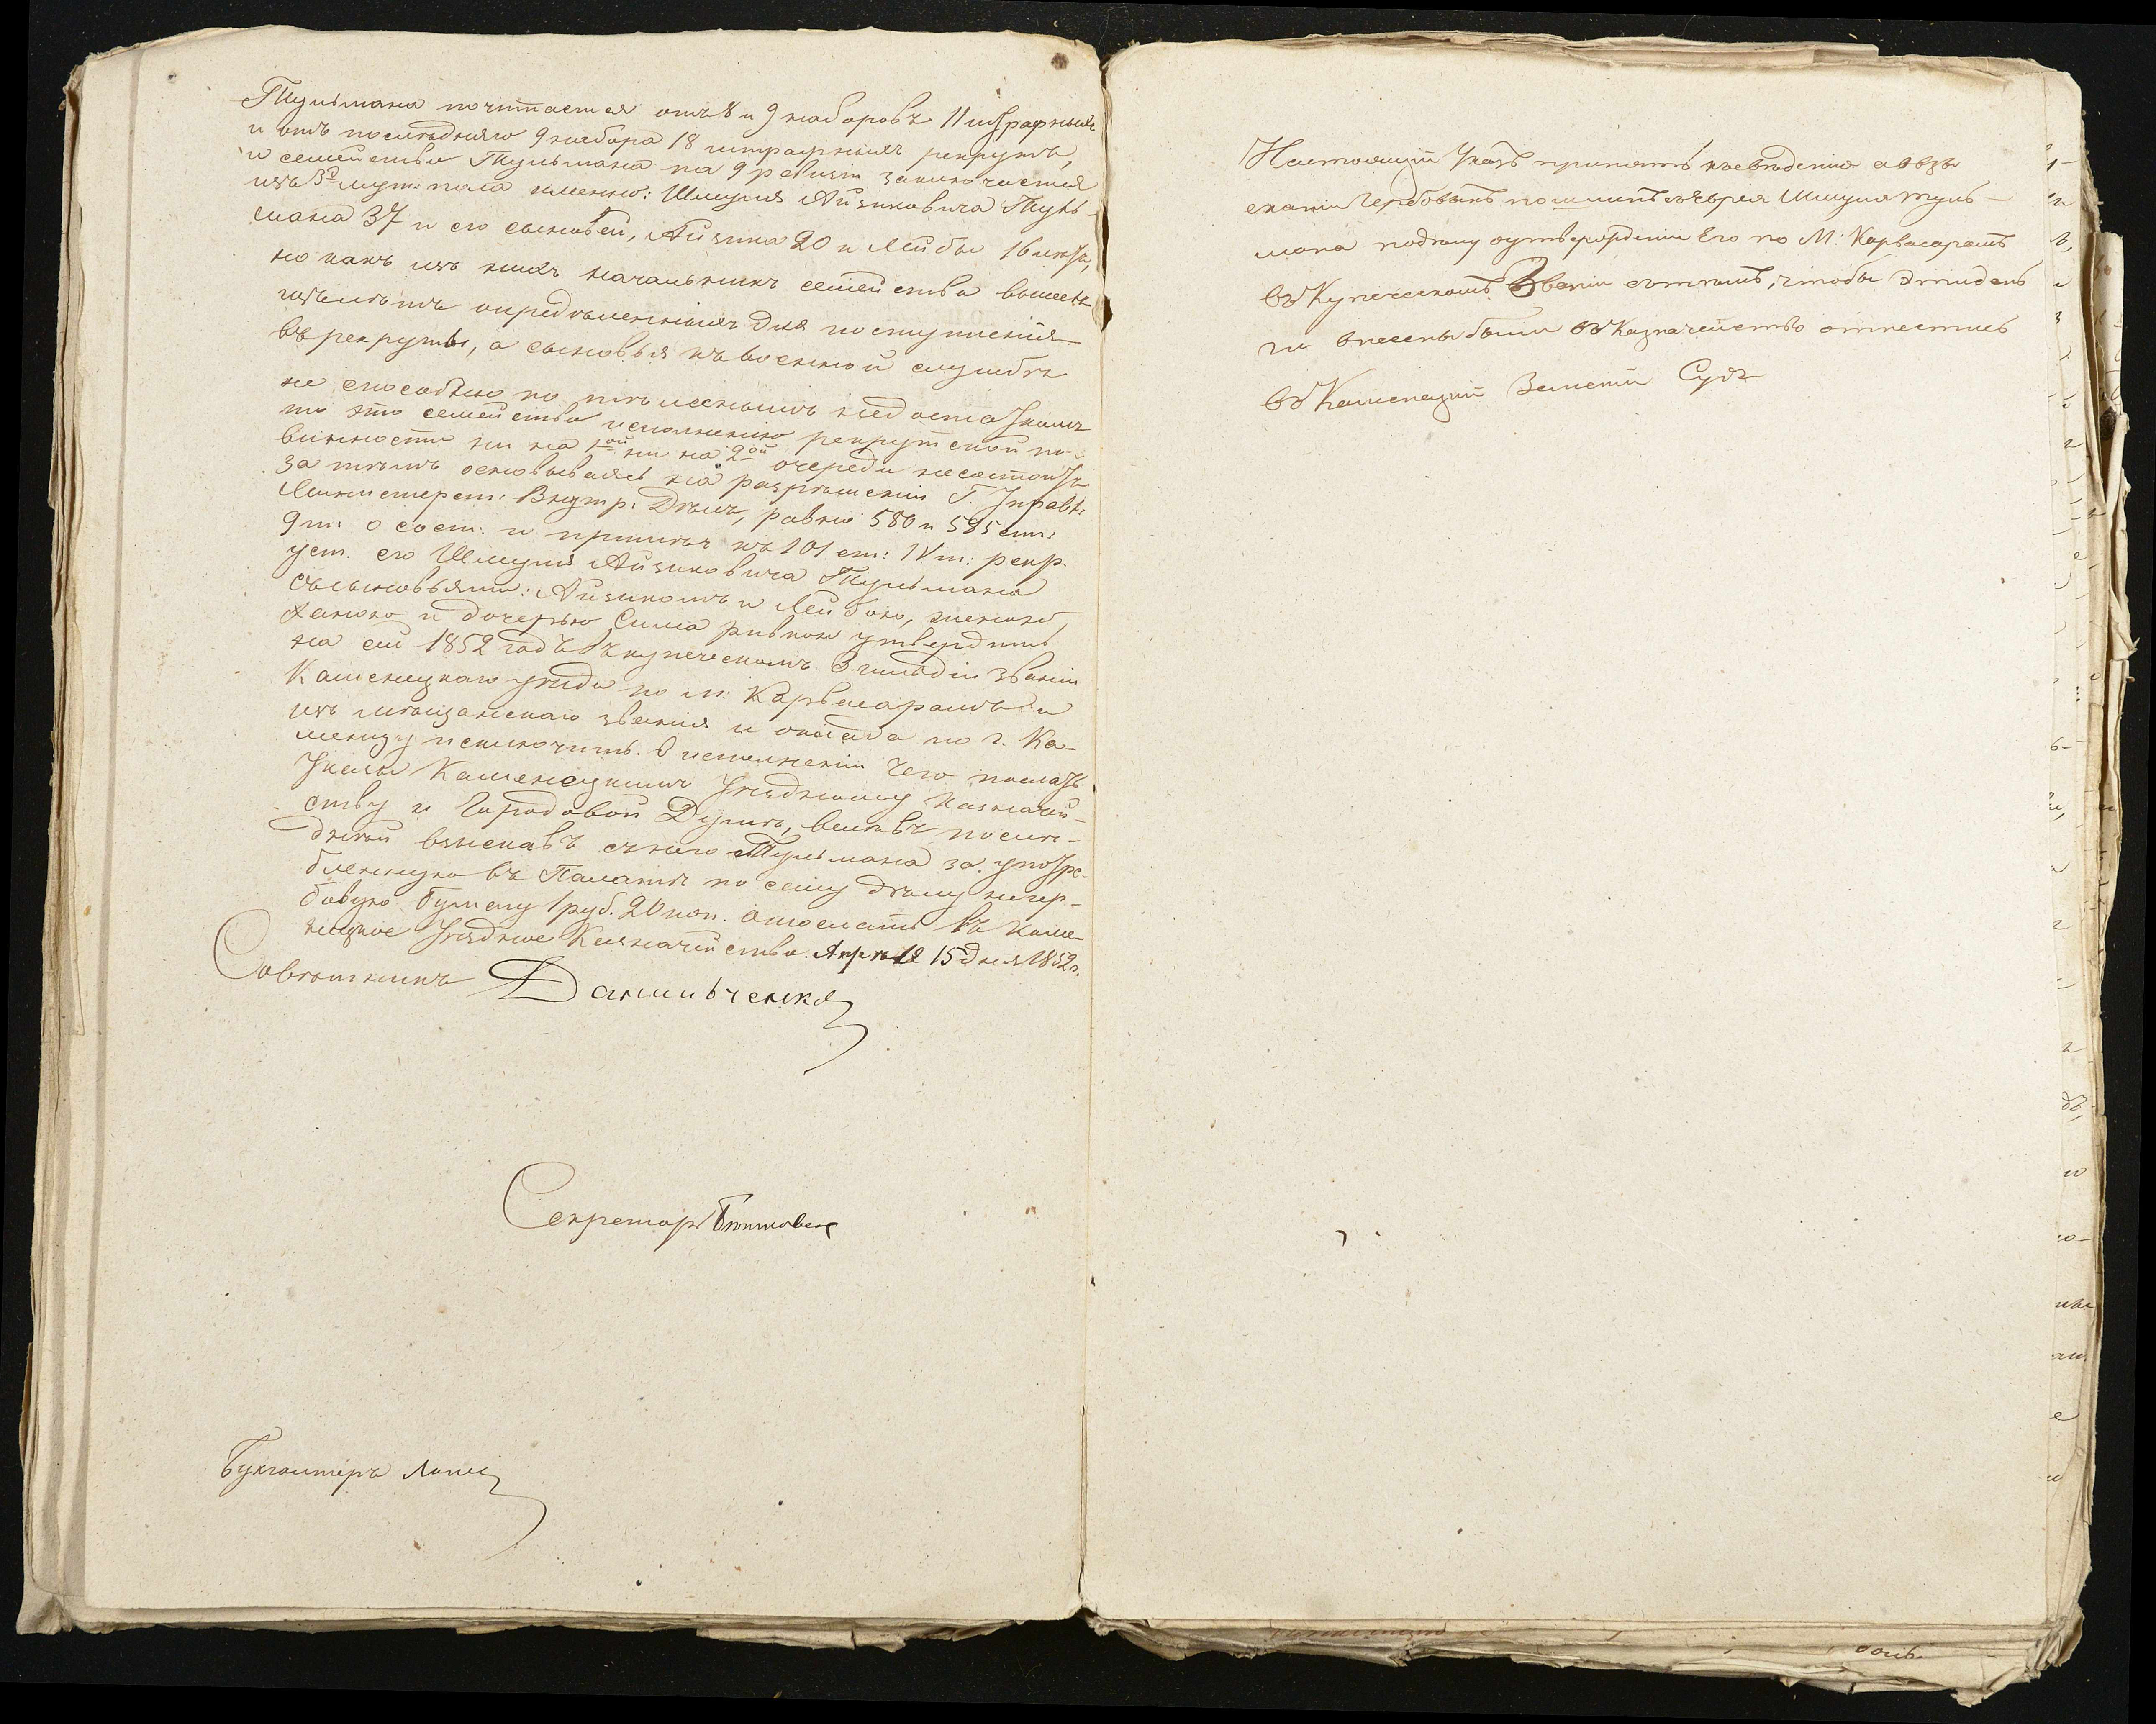 Тульмана почитается отъ 8 и 9 наборовъ 11 штрафныхъ
и отъ последняго 9 набора 18 штрафныхъ рекрутъ,
и семейство Тульмана на 9 ревизіи заключается
изъ 3х муж: пола именно: Шмуля Айзиковича Туль-
мана 37 и его сыновей, Айзика 20 и Лейбы 16 лѣтъ,
но какъ изъ нихъ начальникъ семейства вышелъ
изъ лѣтъ опредѣленныхъ для поступленія
въ рекруты, а сыновья къ военной службѣ
не способны по тѣлеснымъ недостаткамъ
то это семейство исполненію рекрутской по-
винности ни на 1ой ни на 2ой очереди не состоитъ
за тѣмъ основываясь на разрѣшеніи Г. Управл:
Министерст: Внутр: Дѣлъ, равно 580 и 585 ст:
9 т: о сост: и примѣч къ 101 ст: IV т: рекр.
уст. его Шмуля Айзиковича Тульмана
съ сыновьями: Айзикомъ и Лейбою, женою
Ханою и дочерью Сима ривкою утвердить
на сей 1852 годъ въ купеческомъ 3 гильдіи званіи
Каменецкаго уѣзда по м: Карвасарамъ и
изъ мѣщанскаго званія и оклада по г. Ка-
менцу исключить. О исполненіи чего послать
Указы Каменецкимъ Уѣздному Казначей-
ству и Городовой Думѣ, велѣвъ послѣ-
дней взыскавъ съ него Тульмана за употре-
бленную въ Палатѣ по сему дѣлу негер-
бовую бумагу 1 руб. 20 коп. отослать въ Каме-
нецкое Уѣздное Казначейство. Апрѣля 15 дня 1852 г.
Совѣтникъ Данильченко
Секретарь
Бухгалтеръ
Настоящій Указъ принять къ свѣденію а о взы
сканіи Гербовыхъ пошлинъ съ Еврея Шмуля Туль-
мана подѣлу о утвержденіи Его по М: Карвасарамъ
въ Купеческомъ Званіи съ тѣмъ, чтобы Эти день
ги внесены были въ Казначейство отнестись
въ Каменецкій Земскій Судъ